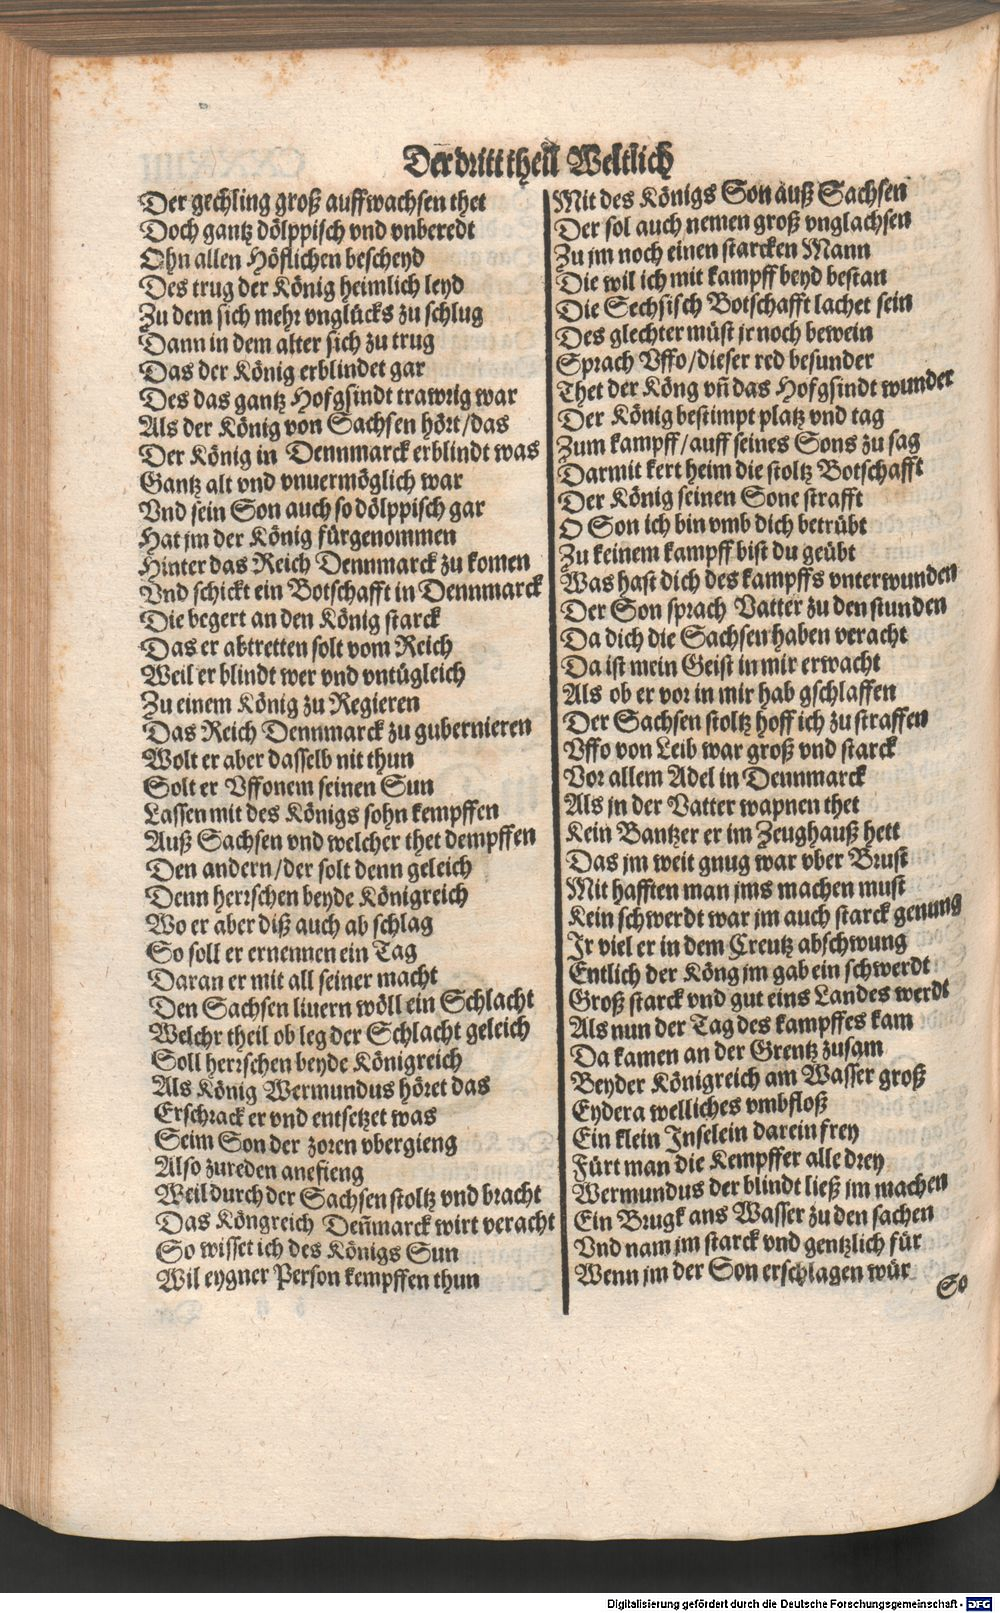 Der dritt theil Weltlich
Der gechling groß auffwachsen thet
Doch gantz dölppisch vnd vnberedt
Ohn allen Höflichen bescheyd
Des trug der König heimlich leyd
Zu dem sich mehr vnglücks zu schlug
Dann in dem alter sich zu trug
Das der König erblindet gar
Des das gantz Hofgsindt trawrig war
Als der König von Sachsen hört/das
Der König in Dennmarck erblindt was
Gantz alt vnd vnuermöglich war
Vnd sein Son auch so dölppisch gar
Hat jm der König fürgenommen
Hinter das Reich Dennmarck zu komen
Vnd schickt ein Botschafft in Dennmarck
Die begert an den König starck
Das er abtretten solt vom Reich
Weil er blindt wer vnd vntügleich
Zu einem König zu Regieren
Das Reich Dennmarck zu gubernieren
Wolt er aber dasselb nit thun
Solt er Vffonem seinen Sun
Lassen mit des Königs sohn kempffen
Auß Sachsen vnd welcher thet dempffen
Den andern/der solt denn geleich
Denn herrschen beyde Königreich
Wo er aber diß auch ab schlag
So soll er ernennen ein Tag
Daran er mit all seiner macht
Den Sachsen liuern wöll ein Schlacht
Welchr theil ob leg der Schlacht geleich
Soll herrschen beyde Königreich
Als König Wermundus höret das
Erschrack er vnd entsetzet was
Seim Son der zoren vbergieng
Also zureden anefieng
Weil durch der Sachsen stoltz vnd bracht
Das Köngreich Deñmarck wirt veracht
So wisset ich des Königs Sun
Wil eygner Person kempffen thun
Mit des Königs Son auß Sachsen
Der sol auch nemen groß vnglachsen
Zu jm noch einen starcken Mann
Die wil ich mit kampff beyd bestan
Die Sechsisch Botschafft lachet sein
Des glechter müst jr noch bewein
Sprach Vffo/dieser red besunder
Thet der Köng vñ das Hofgsindt wunder
Der König bestimpt platz vnd tag
Zum kampff/auff seines Sons zu sag
Darmit kert heim die stoltz Botschafft
Der König seinen Sone strafft
O Son ich bin vmb dich betrübt
Zu keinem kampff bist du geübt
Was hast dich des kampffs vnterwunden
Der Son sprach Vatter zu den stunden
Da dich die Sachsen haben veracht
Da ist mein Geist in mir erwacht
Als ob er vor in mir hab gschlaffen
Der Sachsen stoltz hoff ich zu straffen
Vffo von Leib war groß vnd starck
Vor allem Adel in Dennmarck
Als jn der Vatter wapnen thet
Kein Bantzer er im Zeughauß hett
Das jm weit gnug war vber Brust
Mit hafften man jms machen must
Kein schwerdt war jm auch starck genung
Jr viel er in dem Creutz abschwung
Entlich der Köng jm gab ein schwerdt
Groß starck vnd gut eins Landes werdt
Als nun der Tag des kampffes kam
Da kamen an der Grentz zusam
Beyder Königreich am Wasser groß
Eydera welliches vmbfloß
Ein klein Jnselein darein frey
Fürt man die Kempffer alle drey
Wermundus der blindt ließ jm machen
Ein Brugk ans Wasser zu den sachen
Vnd nam jm starck vnd gentzlich für
Wenn jm der Son erschlagen wür
So
Digitalisierung gefördert durch die Deutsche Forschungsgemeinschaft - DFG